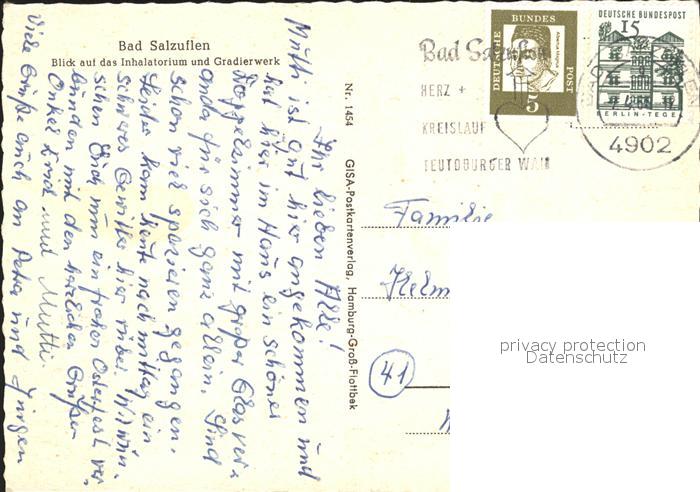 Bad Salzuflen
Blick auf das Inhalatorium und Gradierwerk
Ihr lieben Alle!
Mutti ist gut hier angekommen und
hat hier im Haus ein schönes
Doppelzimmer mit großer Glasver-
anda für sich ganz allein. Sind
schon viel spazieren gegangen.
Leider kam heute nachmittag ein
schweres Gewitter hier rüber. Wir wün-
schen Euch nun ein frohes Osterfest ver-
bunden mit den herzlichen Grüßen
Onkel und Mutti.
Viele Grüße auch an Petra und Jürgen
Nr. 1454 GISA-Postkartenverlag, Hamburg-Groß-Flottbek
Bad Salzuflen
HERZ +
KREISLAUF
TEUTOBURGER WALD
DEUTSCHE BUNDESPOST
5
DEUTSCHE BUNDESPOST
15
BERLIN-TEGEL
4902
Familie
Helm
41
privacy protection
Datenschutz